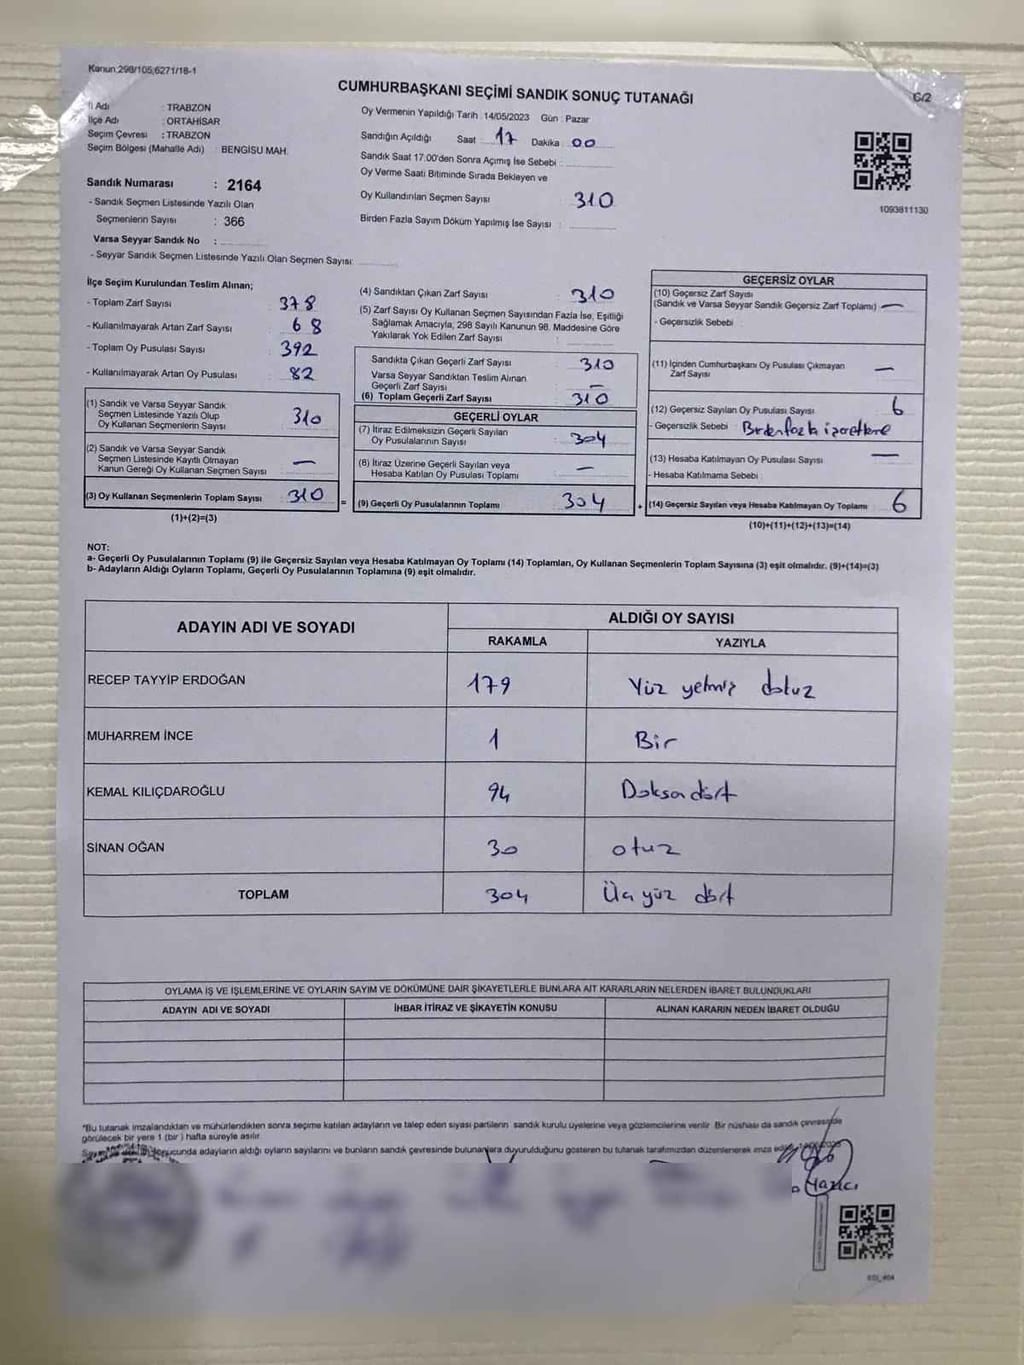 Kanun:298/105,6271/18-1
C/2
CUMHURBAŞKANI SEÇİMİ SANDIK SONUÇ TUTANAĞI
İl Adı : TRABZON
İlçe Adı : ORTAHİSAR
Seçim Çevresi : TRABZON
Seçim Bölgesi (Mahalle Adı) : BENGİSU MAH.
Sandık Numarası : 2164
- Sandık Seçmen Listesinde Yazılı Olan
Seçmenlerin Sayısı : 366
Varsa Seyyar Sandık No :
- Seyyar Sandık Seçmen Listesinde Yazılı Olan Seçmen Sayısı:
Oy Vermenin Yapıldığı Tarih : 14/05/2023 Gün : Pazar
Sandığın Açıldığı Saat : 17 Dakika : 00
Sandık Saat 17.00'den Sonra Açımış İse Sebebi :
Oy Verme Saati Bitiminde Sırada Bekleyen ve
Oy Kullandırılan Seçmen Sayısı : 310
Birden Fazla Sayım Döküm Yapılmış İse Sayısı :
1093811130
İlçe Seçim Kurulundan Teslim Alınan;
- Toplam Zarf Sayısı : 378
- Kullanılmayarak Artan Zarf Sayısı : 68
- Toplam Oy Pusulası Sayısı : 392
- Kullanılmayarak Artan Oy Pusulası : 82
(1) Sandık ve Varsa Seyyar Sandık
Seçmen Listesinde Yazılı Olup
Oy Kullanan Seçmenlerin Sayısı : 310
(2) Sandık ve Varsa Seyyar Sandık
Seçmen Listesinde Kayıtlı Olmayan
Kanun Gereği Oy Kullanan Seçmen Sayısı : —
(3) Oy Kullanan Seçmenlerin Toplam Sayısı : 310 =
(1)+(2)=(3)
(4) Sandıktan Çıkan Zarf Sayısı : 310
(5) Zarf Sayısı Oy Kullanan Seçmen Sayısından Fazla İse, Eşitliği
Sağlamak Amacıyla, 298 Sayılı Kanunun 98. Maddesine Göre
Yakılarak Yok Edilen Zarf Sayısı :
Sandıkta Çıkan Geçerli Zarf Sayısı : 310
Varsa Seyyar Sandıktan Teslim Alınan
Geçerli Zarf Sayısı : —
(6) Toplam Geçerli Zarf Sayısı : 310
GEÇERLİ OYLAR
(7) İtiraz Edilmeksizin Geçerli Sayılan
Oy Pusulalarının Sayısı : 304
(8) İtiraz Üzerine Geçerli Sayılan veya
Hesaba Katılan Oy Pusulası Toplamı : —
(9) Geçerli Oy Pusulalarının Toplamı : 304 +
GEÇERSİZ OYLAR
(10) Geçersiz Zarf Sayısı
(Sandık ve Varsa Seyyar Sandık Geçersiz Zarf Toplamı) : —
- Geçersizlik Sebebi :
(11) İçinden Cumhurbaşkanı Oy Pusulası Çıkmayan
Zarf Sayısı : —
(12) Geçersiz Sayılan Oy Pusulası Sayısı : 6
- Geçersizlik Sebebi : Birden fazla işaretleme
(13) Hesaba Katılmayan Oy Pusulası Sayısı : —
- Hesaba Katılmama Sebebi :
(14) Geçersiz Sayılan veya Hesaba Katılmayan Oy Toplamı : 6
(10)+(11)+(12)+(13)=(14)
NOT:
a- Geçerli Oy Pusulalarının Toplamı (9) ile Geçersiz Sayılan veya Hesaba Katılmayan Oy Toplamı (14) Toplamları, Oy Kullanan Seçmenlerin Toplam Sayısına (3) eşit olmalıdır. (9)+(14)=(3)
b- Adayların Aldığı Oyların Toplamı, Geçerli Oy Pusulalarının Toplamına (9) eşit olmalıdır.
ADAYIN ADI VE SOYADI
ALDIĞI OY SAYISI
RAKAMLA YAZIYLA
RECEP TAYYİP ERDOĞAN 179 Yüz yetmiş dokuz
MUHARREM İNCE 1 Bir
KEMAL KILIÇDAROĞLU 94 Doksandört
SİNAN OĞAN 30 otuz
TOPLAM 304 Üç yüz dört
OYLAMA İŞ VE İŞLEMLERİNE VE OYLARIN SAYIM VE DÖKÜMÜNE DAİR ŞİKAYETLERLE BUNLARA AİT KARARLARIN NELERDEN İBARET BULUNDUKLARI
ADAYIN ADI VE SOYADI İHBAR İTİRAZ VE ŞİKAYETİN KONUSU ALINAN KARARIN NEDEN İBARET OLDUĞU
*Bu tutanak imzalandıktan ve mühürlendikten sonra seçime katılan adayların ve talep eden siyasi partilerin sandık kurulu üyelerine veya gözlemcilerine verilir. Bir nüshası da sandık çevresinde
görülecek bir yere 1 (bir) hafta süreyle asılır.
sonucunda adayların aldığı oyların sayılarını ve bunların sandık çevresinde bulunanlara duyurulduğunu gösteren bu tutanak tarafımızdan düzenlenerek imza
Yazıcı